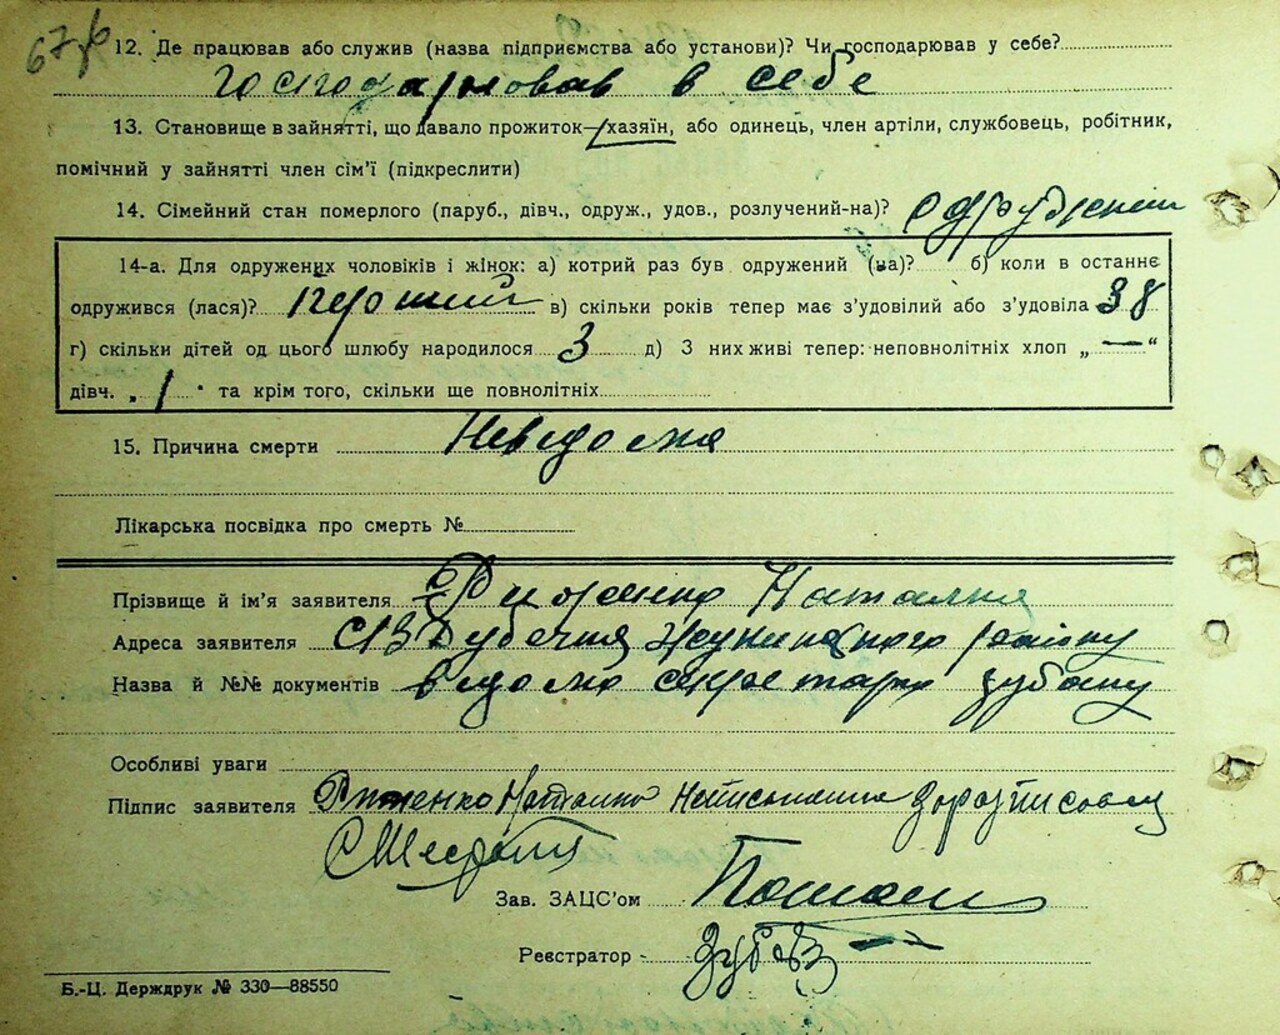 12. Де працював або служив (назва підприємства або установи)? Чи господарював у себе?
Господарював в себе
13. Становище в зайнятті, що давало прожиток—хазяїн, або одинець, член артілі, службовець, робітник,
помічний у зайнятті член сім’ї (підкреслити)
14. Сімейний стан померлого (паруб., дівч., одруж., удов., розлучений-на)? Одружений
14-а. Для одружених чоловіків і жінок: а) котрий раз був одружений (на)? б) коли в останнє
одружився (лася)? Перший в) скільки років тепер має з’удовілий або з’удовіла 38
г) скільки дітей од цього шлюбу народилося 3 д) З них живі тепер: неповнолітніх хлоп „ — “
дівч. „ 1 “ та крім того, скільки ще повнолітніх
15. Причина смерти Невідома
Лікарська посвідка про смерть №
Прізвище й ім’я заявителя Наталка
Адреса заявителя Дубечня району
Назва й №№ документів відомо секретарю
Особливі уваги
Підпис заявителя Наталка
Зав. ЗАЦС’ом
Реєстратор -
Б.-Ц. Держдрук № 330—88550